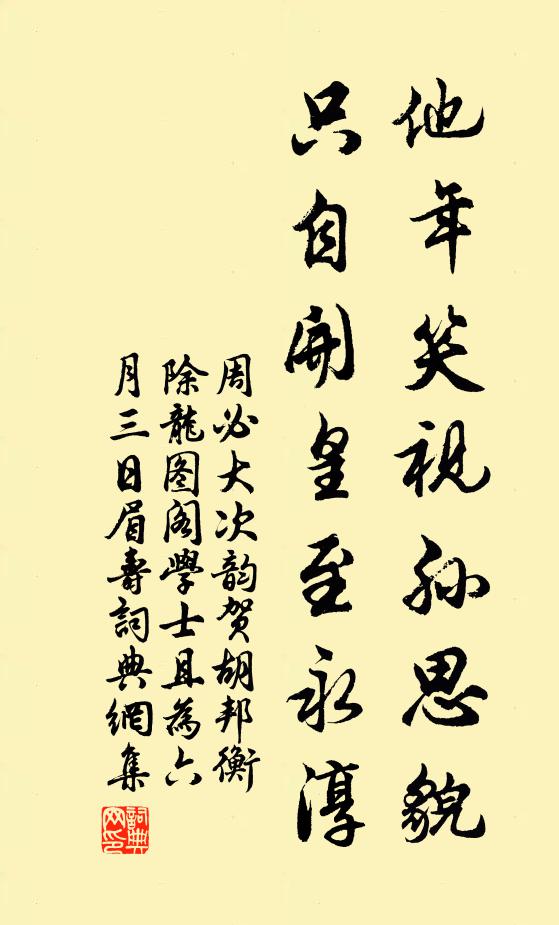 他年笑視孙思貌
只自開皇至永淳
周必大次韵贺胡邦衡
除龍图阁學士且為六
月三日眉壽詞典網集
詞典网印